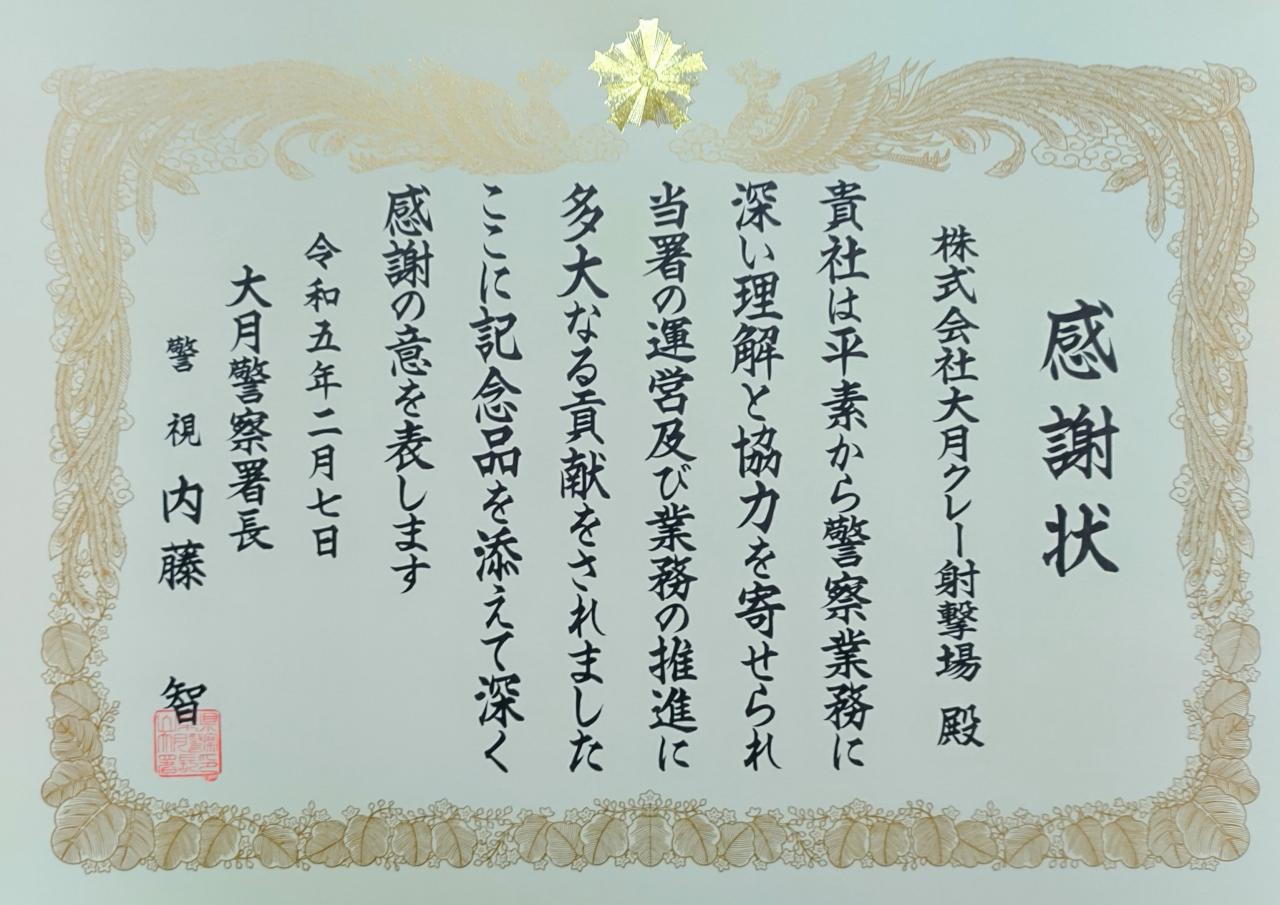 感謝状
株式会社大月クレー射撃場 殿
貴社は平素から警察業務に
深い理解と協力を寄せられ
当署の運営及び業務の推進に
多大なる貢献をされました
ここに記念品を添えて深く
感謝の意を表します
令和五年二月七日
大月警察署長
警視 内藤 智